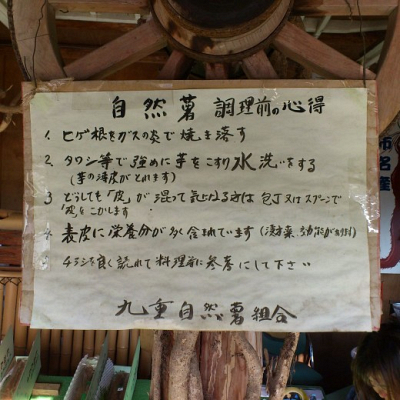 自然薯 調理前の心得
1. ヒゲ根をガスの炎で焼き落す
2. タワシ等で強めに芋をこすり水洗いをする
(芋の薄皮がとれます)
3 どうしても「皮」が混って気になる方は包丁又はスプーンで
皮をこかします
4. 表皮に栄養分が多く含まれています
5 チラシを良く読んで料理前に参考にして下さい
九重自然薯組合
名産